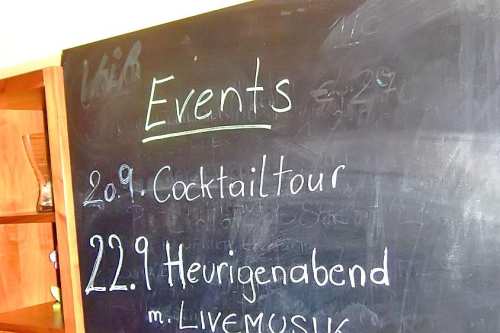 Events
20.9. Cocktailtour
22.9 Heurigenabend
m. LIVEMUSIK